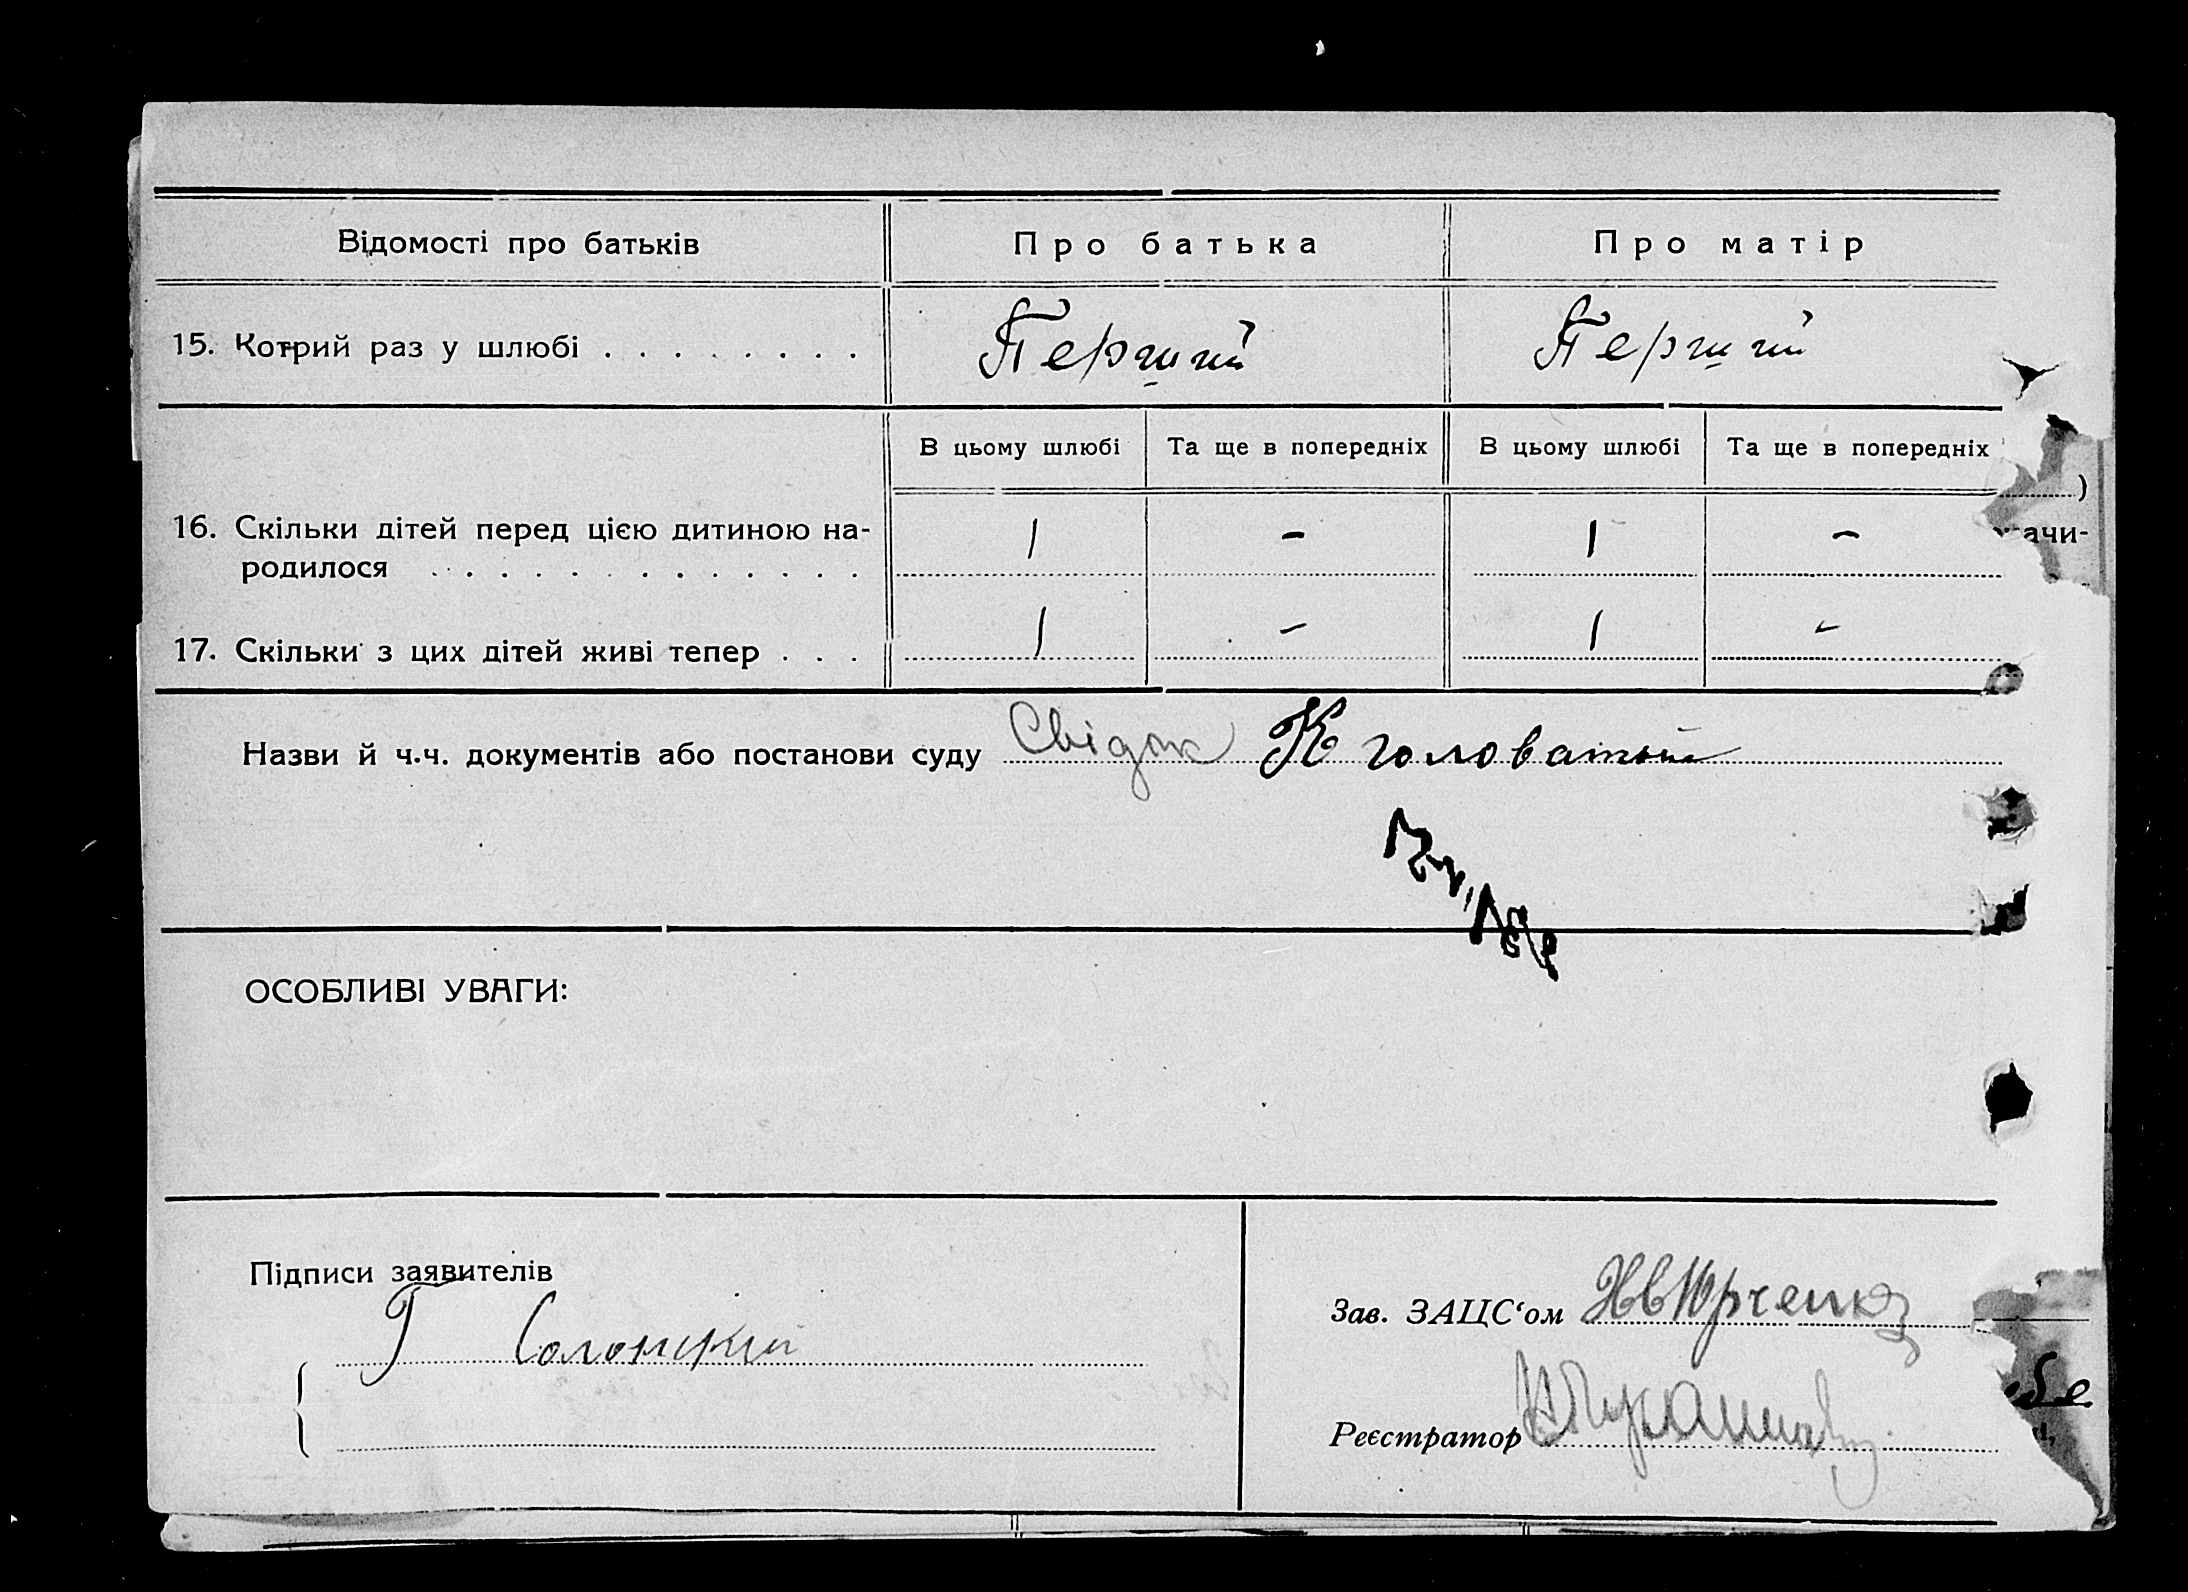 Відомості про батьків Про батька Про матір
15. Котрий раз у шлюбі . . . . . . . . Перший Перший
В цьому шлюбі Та ще в попередніх В цьому шлюбі Та ще в попередніх
)
ачи-
16. Скільки дітей перед цією дитиною на- 1 – 1 –
родилося . . . . . . . . . . . . .
17. Скільки з цих дітей живі тепер . . . 1 – 1 –
Назви й ч.ч. документів або постанови суду Свідок К головатый
ОСОБЛИВІ УВАГИ:
Підписи заявителів
Г Солонский
Зав. ЗАЦС‘ом Юрченко
Реєстратор